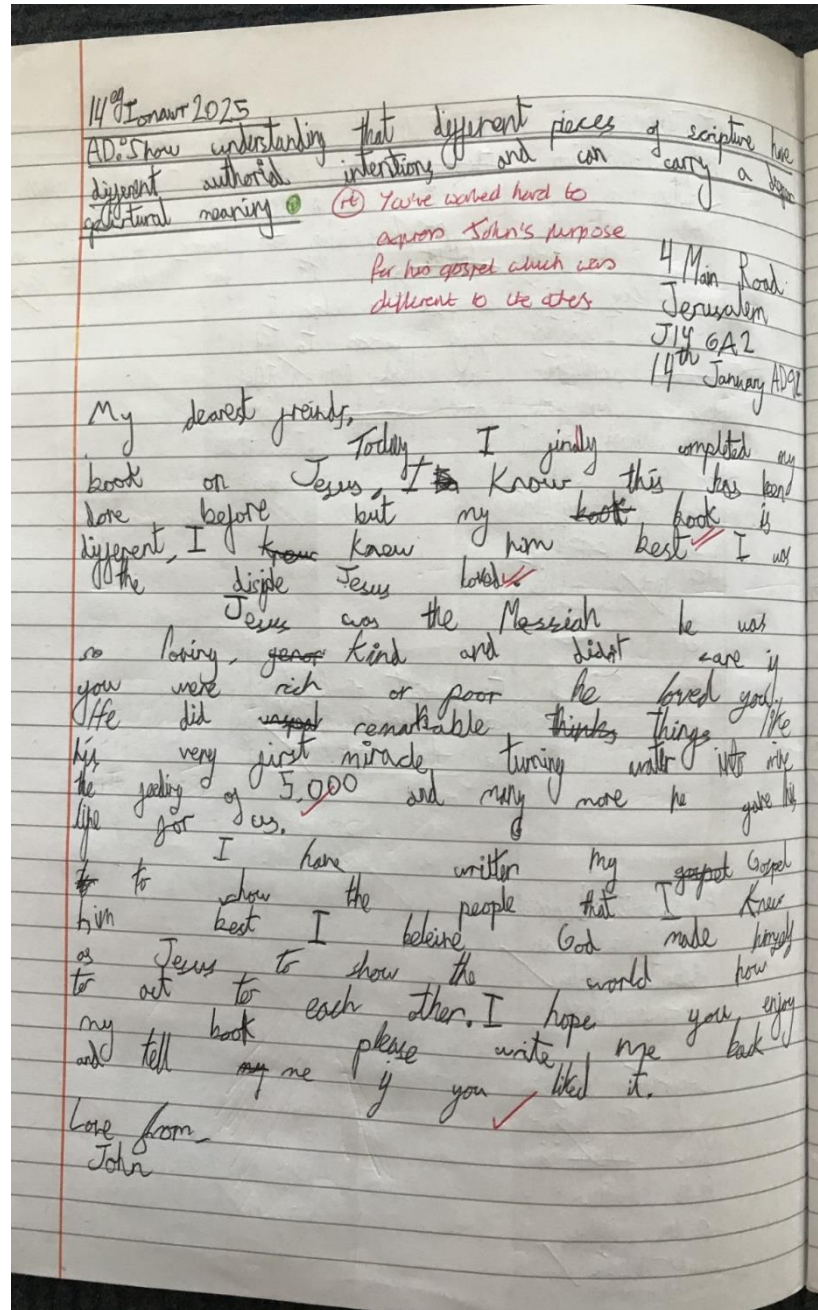 14eg Ionawr 2025
AD: Show understanding that different pieces of scripture have
different authorial intentions and can carry a deeper
meaning
(rt) You've worked hard to
express John's purpose
for his gospel which was
different to the others
4 Main Road
Jerusalem
J14 6A2
14th January AD92
My dearest freinds,
Today, I finally completed my
book on Jesus, I know this has been
done before but my book book is
different, I know knew him best I was
the disiple Jesus loved.
Jesus was the Messiah he was
so loving, kind and didnt care if
you were rich or poor he loved you.
He did remarkable thinks things like
his very first miracle turning water into wine
the feeding of 5,000 and many more he gave his
life for us.
I have written my gospel Gospel
to to show the people that I knew
him best I beleive God made himself
as Jesus to show the world how
to act to each other. I hope you enjoy
my book please write me back
and tell my me if you liked it.
Love from
John